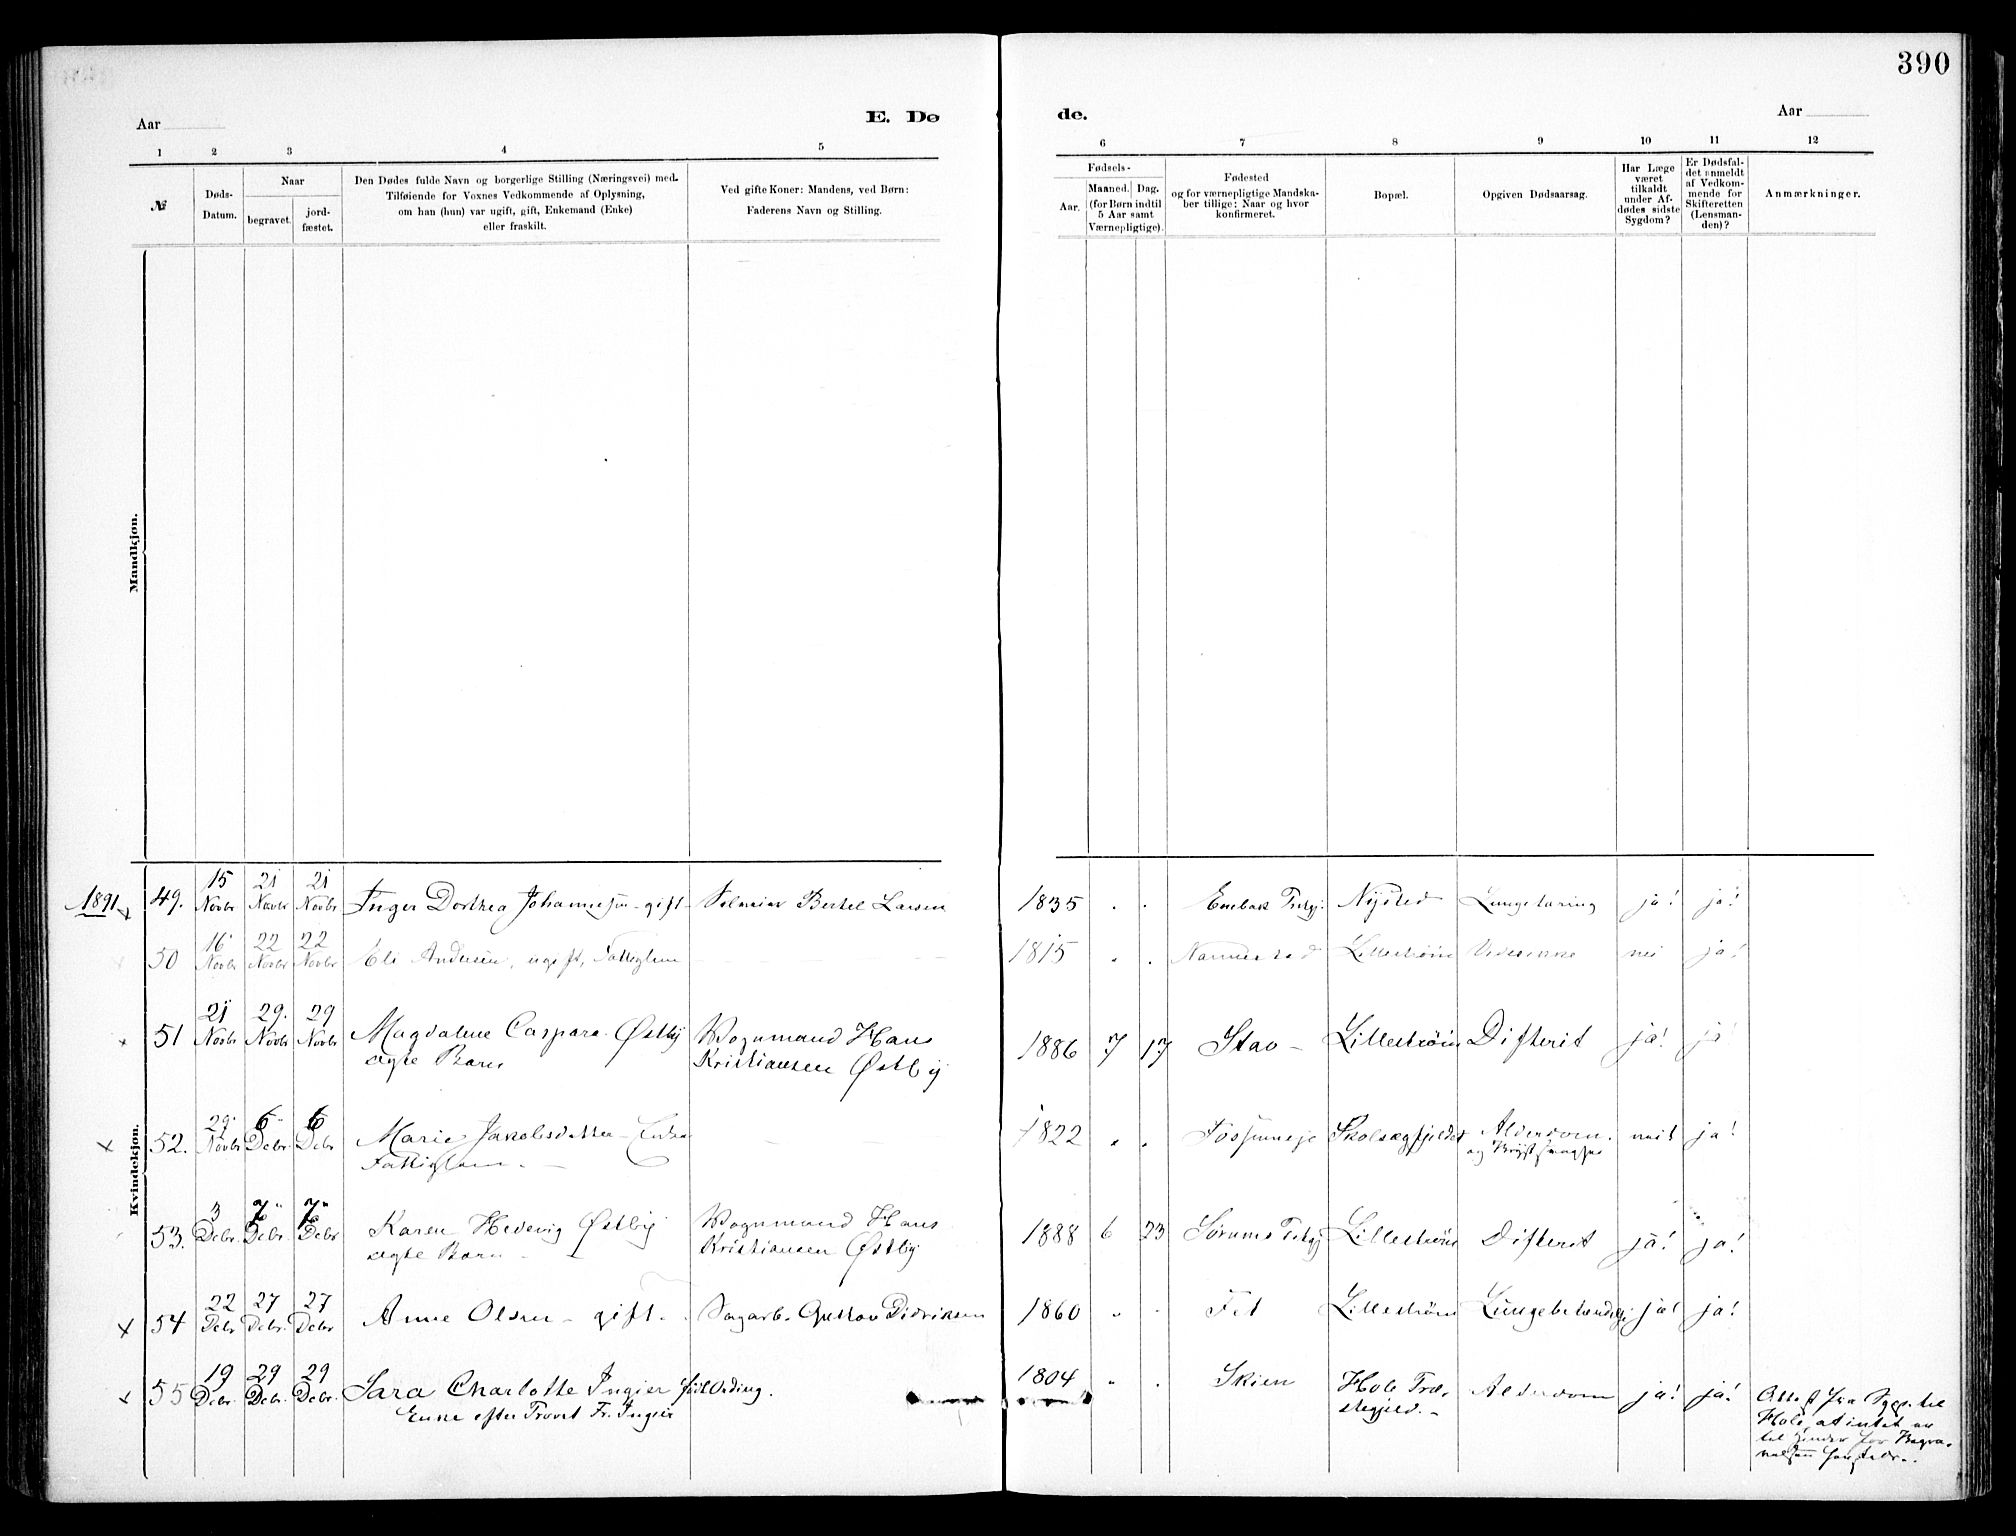 390
Aar
E. Dø
de.
Aar
1 2 3 4 5
6 7 8 9 10 11 12
№
Døds-
Datum.
Naar
begravet.
jord-
fæstet.
Den Dødes fulde Navn og borgerlige Stilling (Næringsvei) med.
Tilføiende for Voxnes Vedkommende af Oplysning,
om han (hun) var ugift, gift, Enkemand (Enke)
eller fraskilt.
Ved gifte Koner: Mandens, ved Børn:
Faderens Navn og Stilling.
Fødsels-
Aar.
Maaned. Dag.
(for Børn indtil
5 Aar samt
Værnepligtige).
Fødested
og for værnepligtige Mandska-
ber tillige: Naar og hvor
konfirmeret.
Bopæl.
Opgiven Dødsaarsag.
Har Læge
været
tilkaldt
under Af-
dødes sidste
Sygdom?
Er Dødsfal-
det anmeldt
af Vedkom-
mende for
Skifteretten
(Lensman-
den)?
Anmærkninger.
Mandkjøn.
Kvindekjøn.
1891
49. 15 Novbr 21 Novbr 21 Novbr Inger Dorthea Johannesen - gift - Bertel Larsen 1835 " " Enebak Nysted ja! ja!
50 16 Novbr 22 Novbr 22 Novbr Eli Andersen, ugift, Fattiglem 1815 " " Nannestad Lillestrøm nei ja!
51 21 Novbr 29. Novbr 29 Novbr Magdalene Caspara Østby Vognmand Hans 1886 7 17 Stav - Lillestrøm Difterit ja! ja!
ægte Barn Kristiansen Østby
52. 29 Novbr 6 Debr. 6 Debr Marie Jakobsdatter - Enke 1822 " " Alderdom. ja!
Fattiglem. - og
53. 3 Debr. 7 Debr. 7 Debr Karen Hedevig Østby Vognmand Hans 1888 6 23 Sørums Lillestrøm Difterit ja! ja!
ægte Barn - Kristiansen Østby
54 22 Debr 27 Debr. 27 Debr Anne Olsen - gift - Sagarb. Gustav Didriksen 1860 " " Fet Lillestrøm ja! ja!
55 19 Debr. 29 Debr. 29 Debr. Sara Charlotte Ingier født Ording. 1804 " " Skien Hole Præ- Alderdom ja! ja!
Enke efter Provst Fr. Ingier stegjeld. -
Attest fra til
Hole, at intet er
til Hinder for Begra-